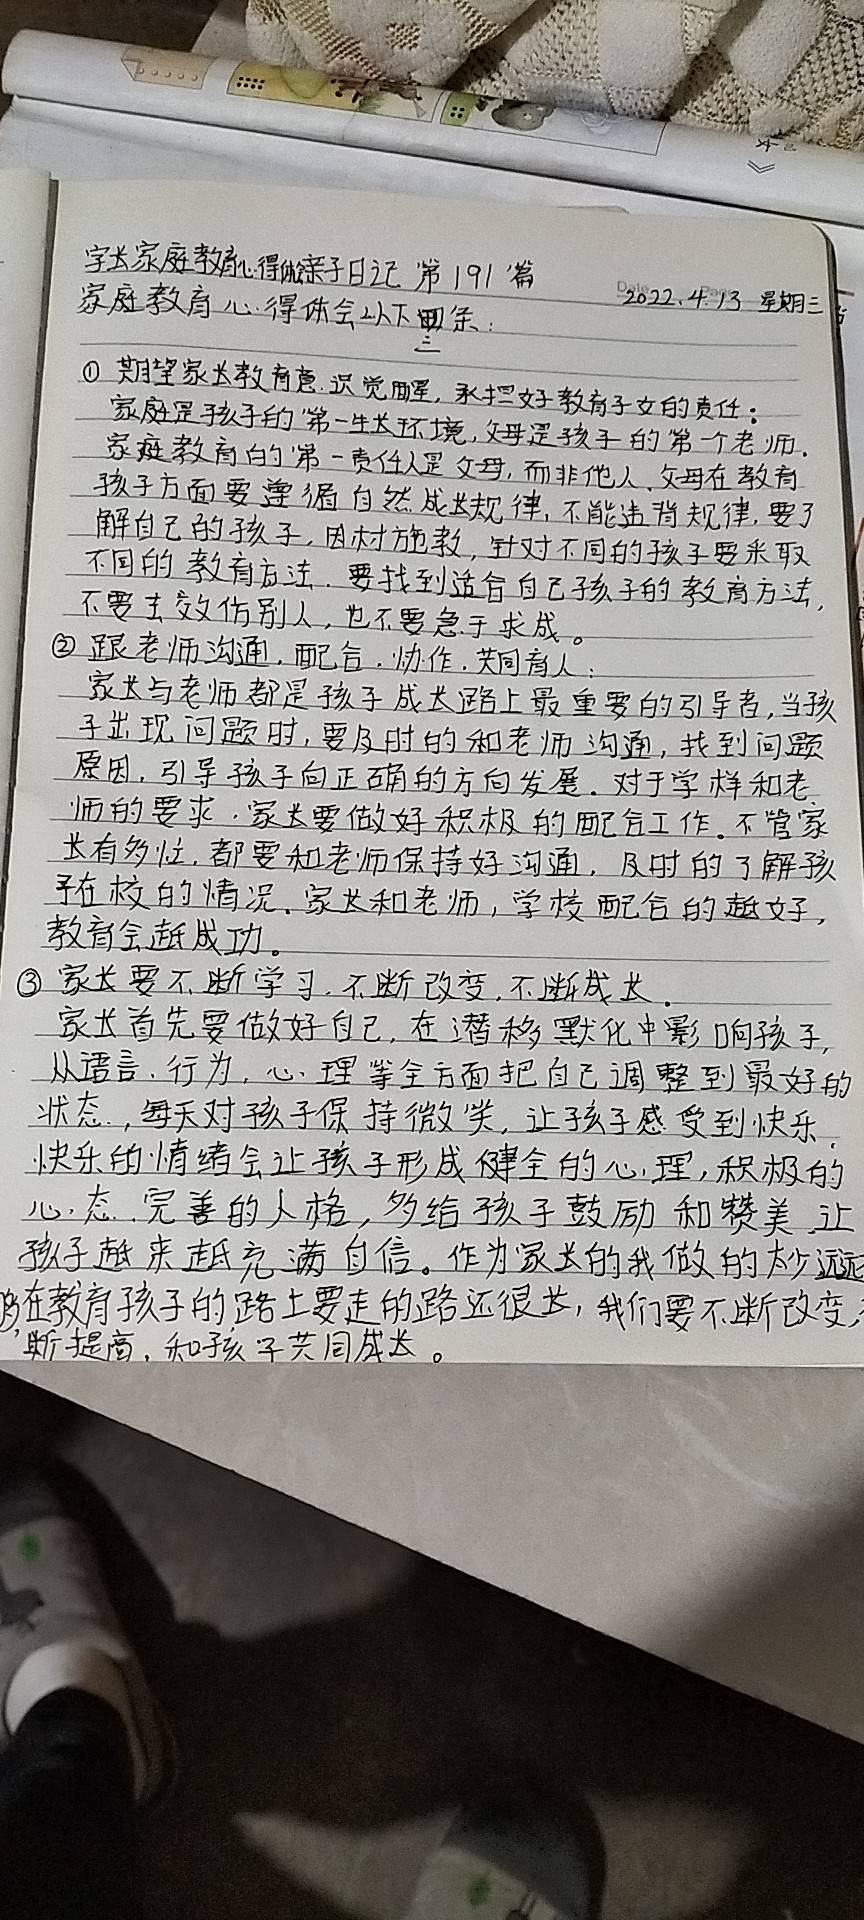 女》
字长家庭教育心得体会亲子日记 第191篇
Date
2022.4.13 星期三
家庭教育心得体会以下三条:
① 期望家长教育意识觉醒,承担好教育子女的责任:
家庭是孩子的第一生长环境,父母是孩子的第一个老师.
家庭教育的第一责任人是父母,而非他人.父母在教育
孩子方面要遵循自然成长规律,不能违背规律.要了
解自己的孩子,因材施教,针对不同的孩子要采取
不同的教育方法.要找到适合自己孩子的教育方法,
不要去效仿别人,也不要急于求成。
② 跟老师沟通.配合.协作.共同育人:
家长与老师都是孩子成长路上最重要的引导者,当孩
子出现问题时,要及时的和老师沟通,找到问题
原因.引导孩子向正确的方向发展.对于学样和老
师的要求.家长要做好积极的配合工作。不管家
长有多忙.都要和老师保持好沟通,及时的了解孩
子在校的情况.家长和老师,学校配合的越好,
教育会越成功。
③ 家长要不断学习.不断改变,不断成长.
家长首先要做好自己,在潜移默化中影响孩子,
从语言.行为,心理等全方面把自己调整到最好的
状态.,每天对孩子保持微笑,让孩子感受到快乐.
快乐的情绪会让孩子形成健全的心理,积极的
心态.完善的人格,多给孩子鼓励和赞美.让
孩子越来越充满自信。作为家长的我做的太少远远
在教育孩子的路上要走的路还很长,我们要不断改变,
断提高,和孩子共同成长。